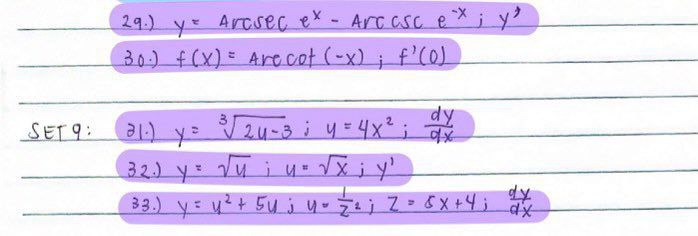 29.) y = Arcsec eˣ - Arccsc e⁻ˣ ; y'
30.) f(x) = Arccot (-x) ; f'(0)
SET 9: 31.) y = ∛(2u-3) ; u = 4x² ; dy/dx
32.) y = √u ; u = √x ; y'
33.) y = u² + 5u ; u = 1/z² ; z = 5x+4 ; dy/dx